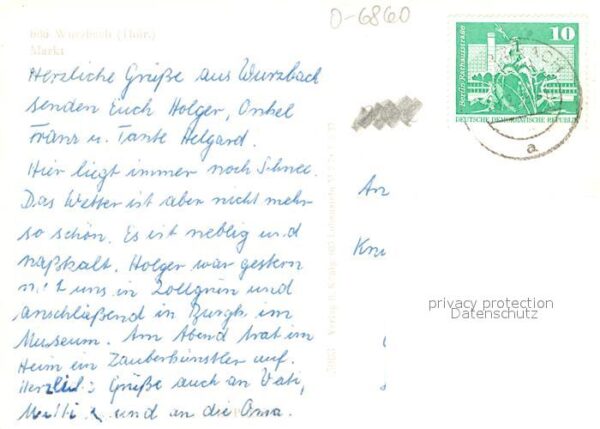 0-6860
686 Wurzbach (Thür.)
Markt
Herzliche Grüße aus Wurzbach
senden Euch Holger, Onkel
Franz u. Tante Helgard.
Hier liegt immer noch Schnee.
Das Wetter ist aber nicht mehr
so schön. Es ist neblig und
naßkalt. Holger war gestern
mit uns in Zollgrün und
anschließend in Burgk im
Museum. Am Abend trat im
Heim ein Zauberkünstler auf.
Herzl. Grüße auch an Vati,
Mutti und an die Oma.
10
Berlin, Rathausstraße
DEUTSCHE DEMOKRATISCHE REPUBLIK
a
An
privacy protection
Datenschutz